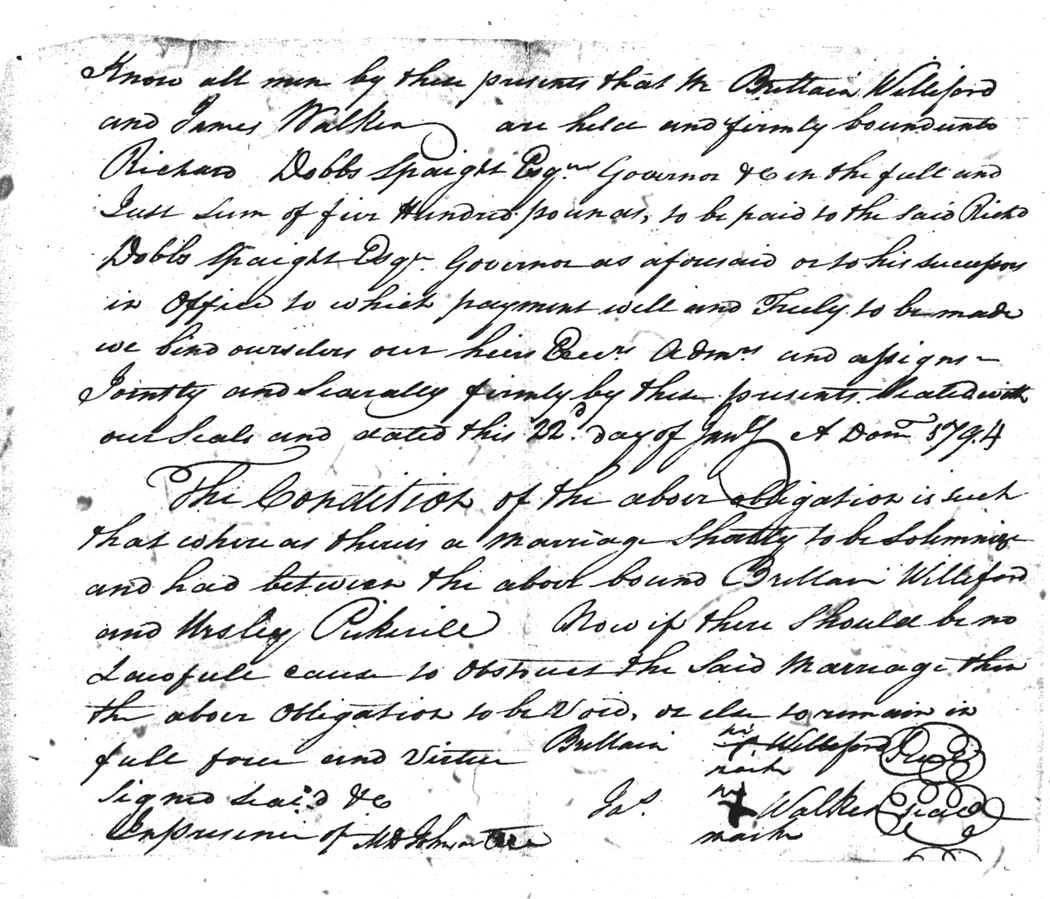 Know all men by these presents that We Brittain Williford
and James Walker are held and firmly bound unto
Richard Dobbs Spaight Esqr Governor &C in the full and
Just Sum of five Hundred pounds, to be paid to the said Richd
Dobbs Spaight Esqr. Governor as aforesaid or to his successors
in Office to which payment well and Truly to be made
we bind ourselves our heirs Execrs Admrs and assigns
Jointly and Severally firmly by these presents Sealed with
our Seals and dated this 22d. day of Jany A Dom 1794
The Condition of the above obligation is such
that whereas there is a Marriage Shortly to be Solemnize
and had between the above bound Brittain Williford
and Ursley Pickerill Now if there Should be no
Lawfull cause to Obstruct the Said Marriage then
the above Obligation to be Void, or else to remain in
full force and Virtue Brittain his + Williford Seal
mark
Signd seal'd &C Jas. his + Walker Seal
In presence of mark